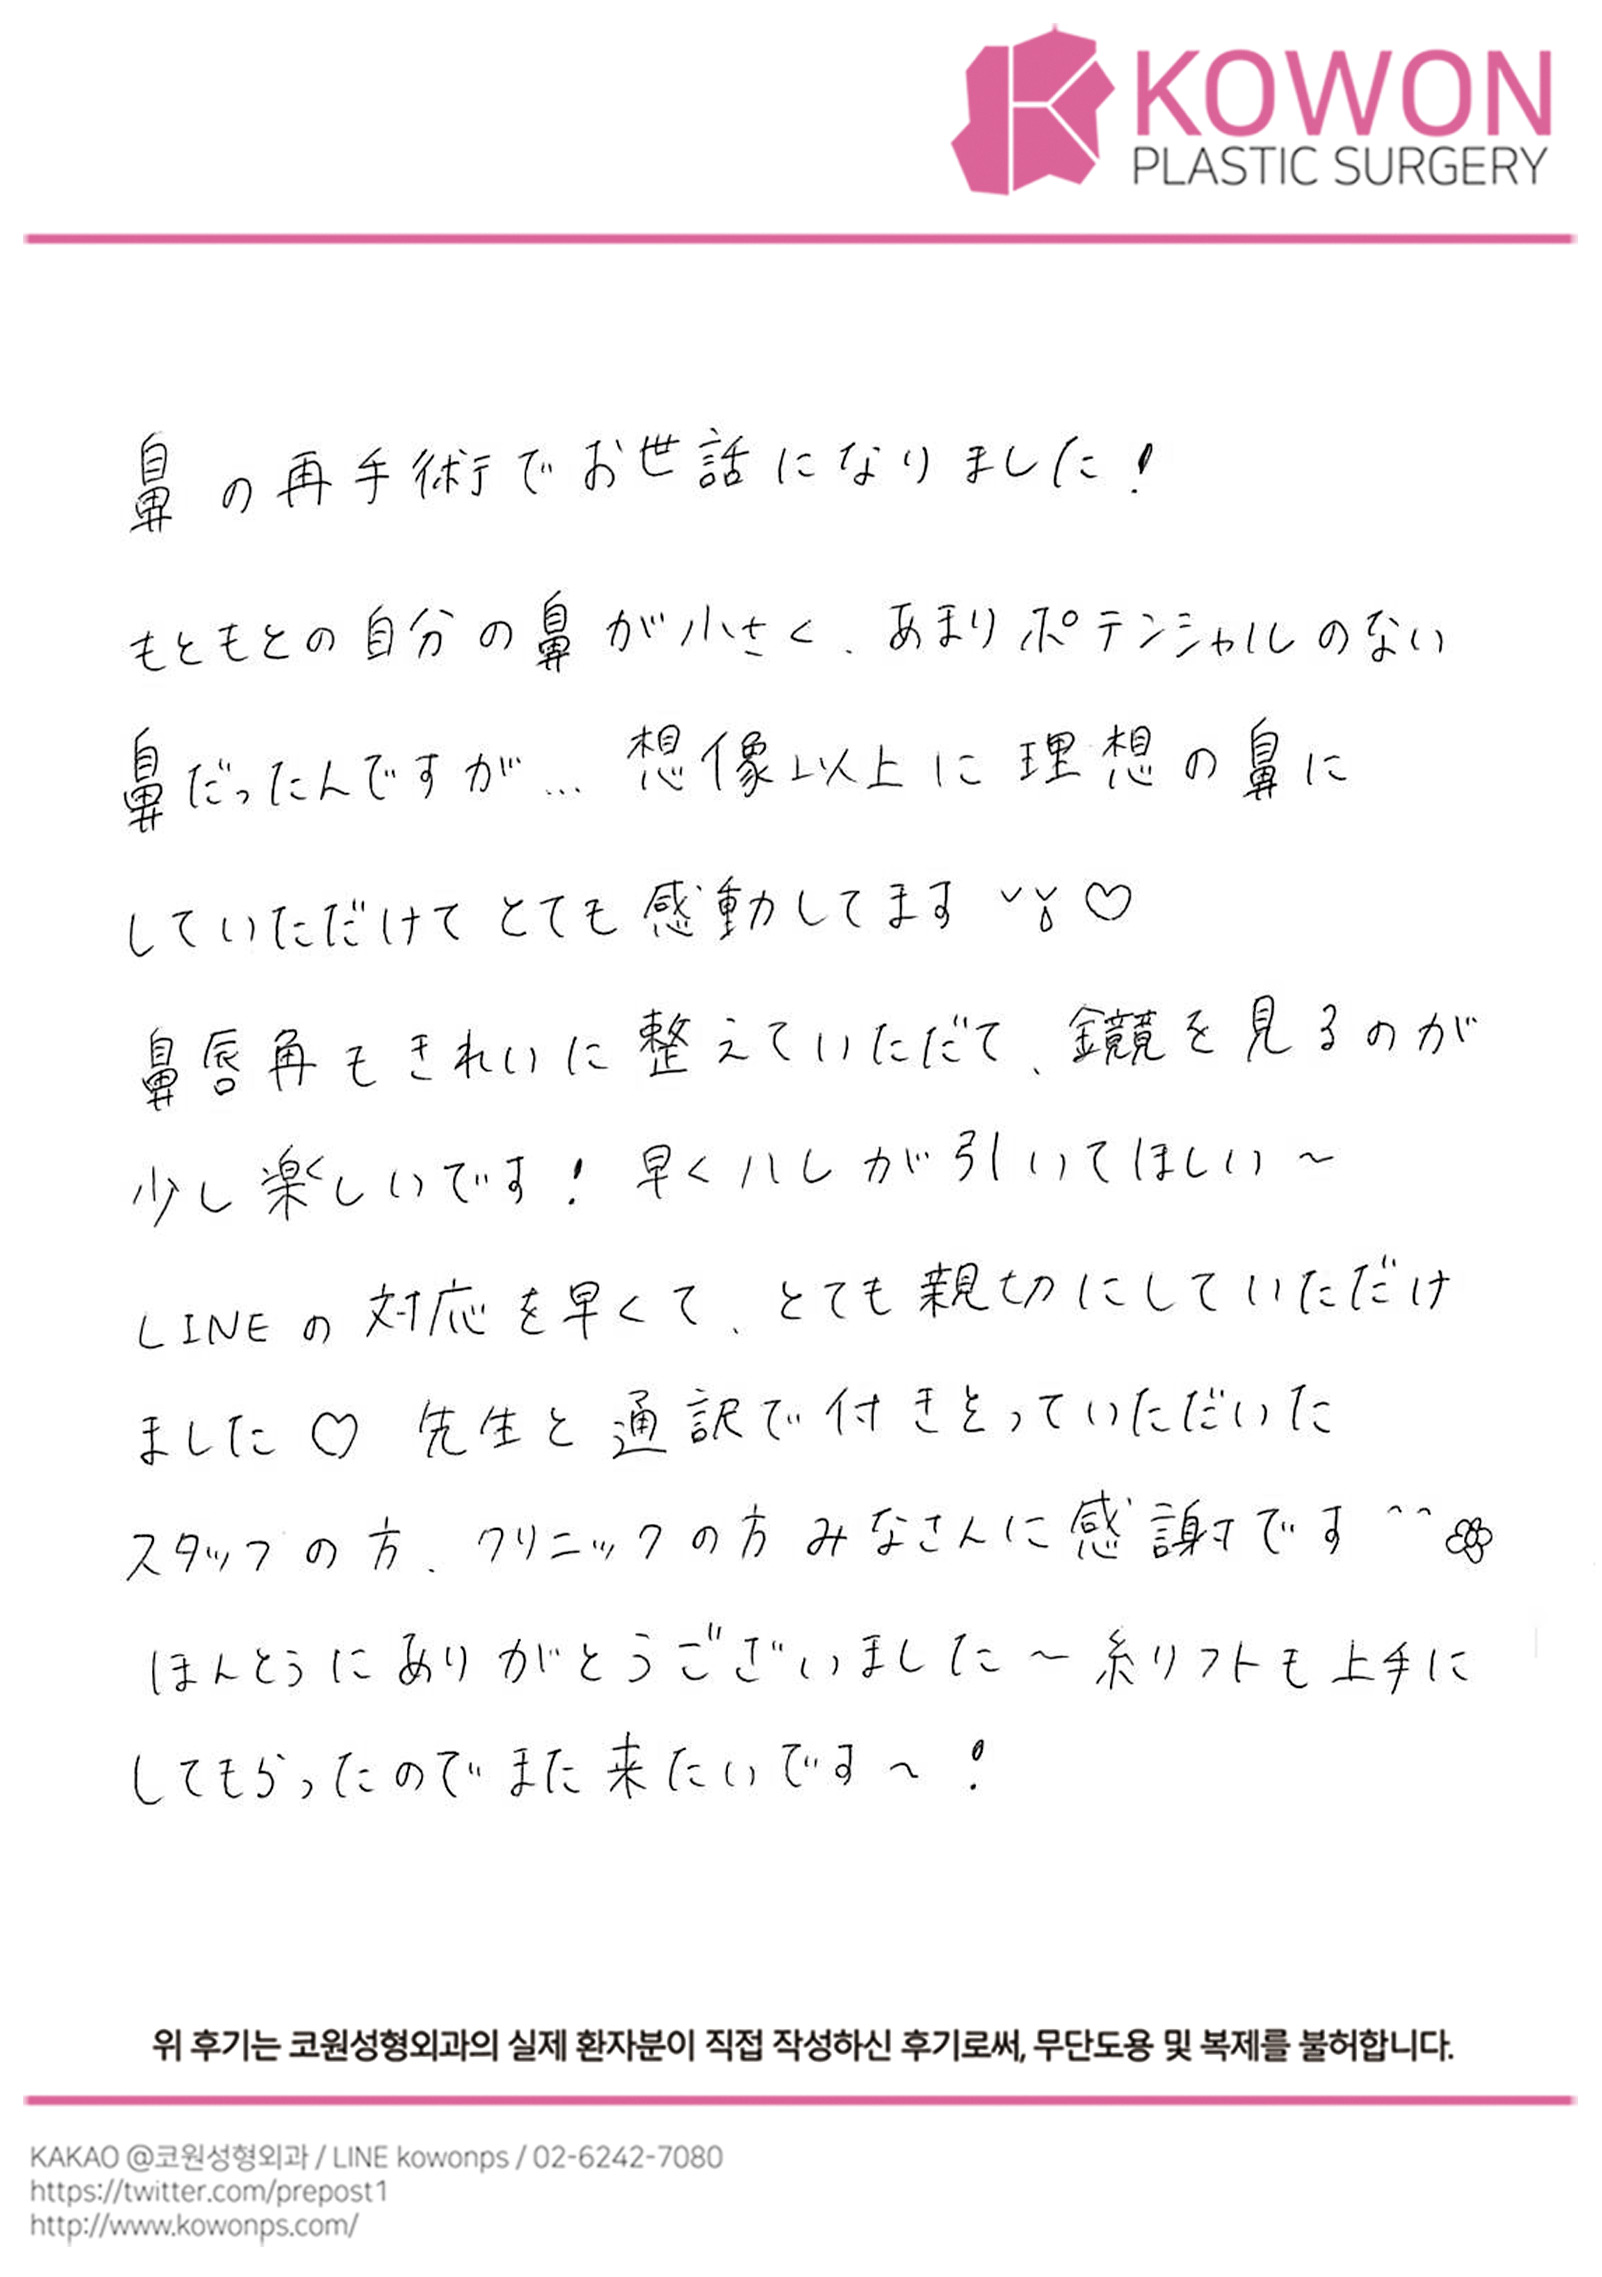 KOWON
PLASTIC SURGERY
鼻の再手術でお世話になりました!
もともとの自分の鼻が小さく、あまりポテンシャルのない
鼻だったんですが... 想像以上に理想の鼻に
していただけてとても感動してます♡
鼻唇角もきれいに整えていただだて、鏡を見るのが
少し楽しいです! 早くハレが引いてほしい〜
LINEの対応を早くて、とても親切にしていただけ
ました♡ 先生と通訳で付きとっていただいた
スタッフの方、クリニックの方みなさんに感謝です^^
ほんとうにありがとうございました〜糸リフトも上手に
してもらったのでまた来たいです〜!
위 후기는 코원성형외과의 실제 환자분이 직접 작성하신 후기로써, 무단도용 및 복제를 불허합니다.
KAKAO @코원성형외과 / LINE kowonps / 02-6242-7080
https://twitter.com/prepost1
http://www.kowonps.com/